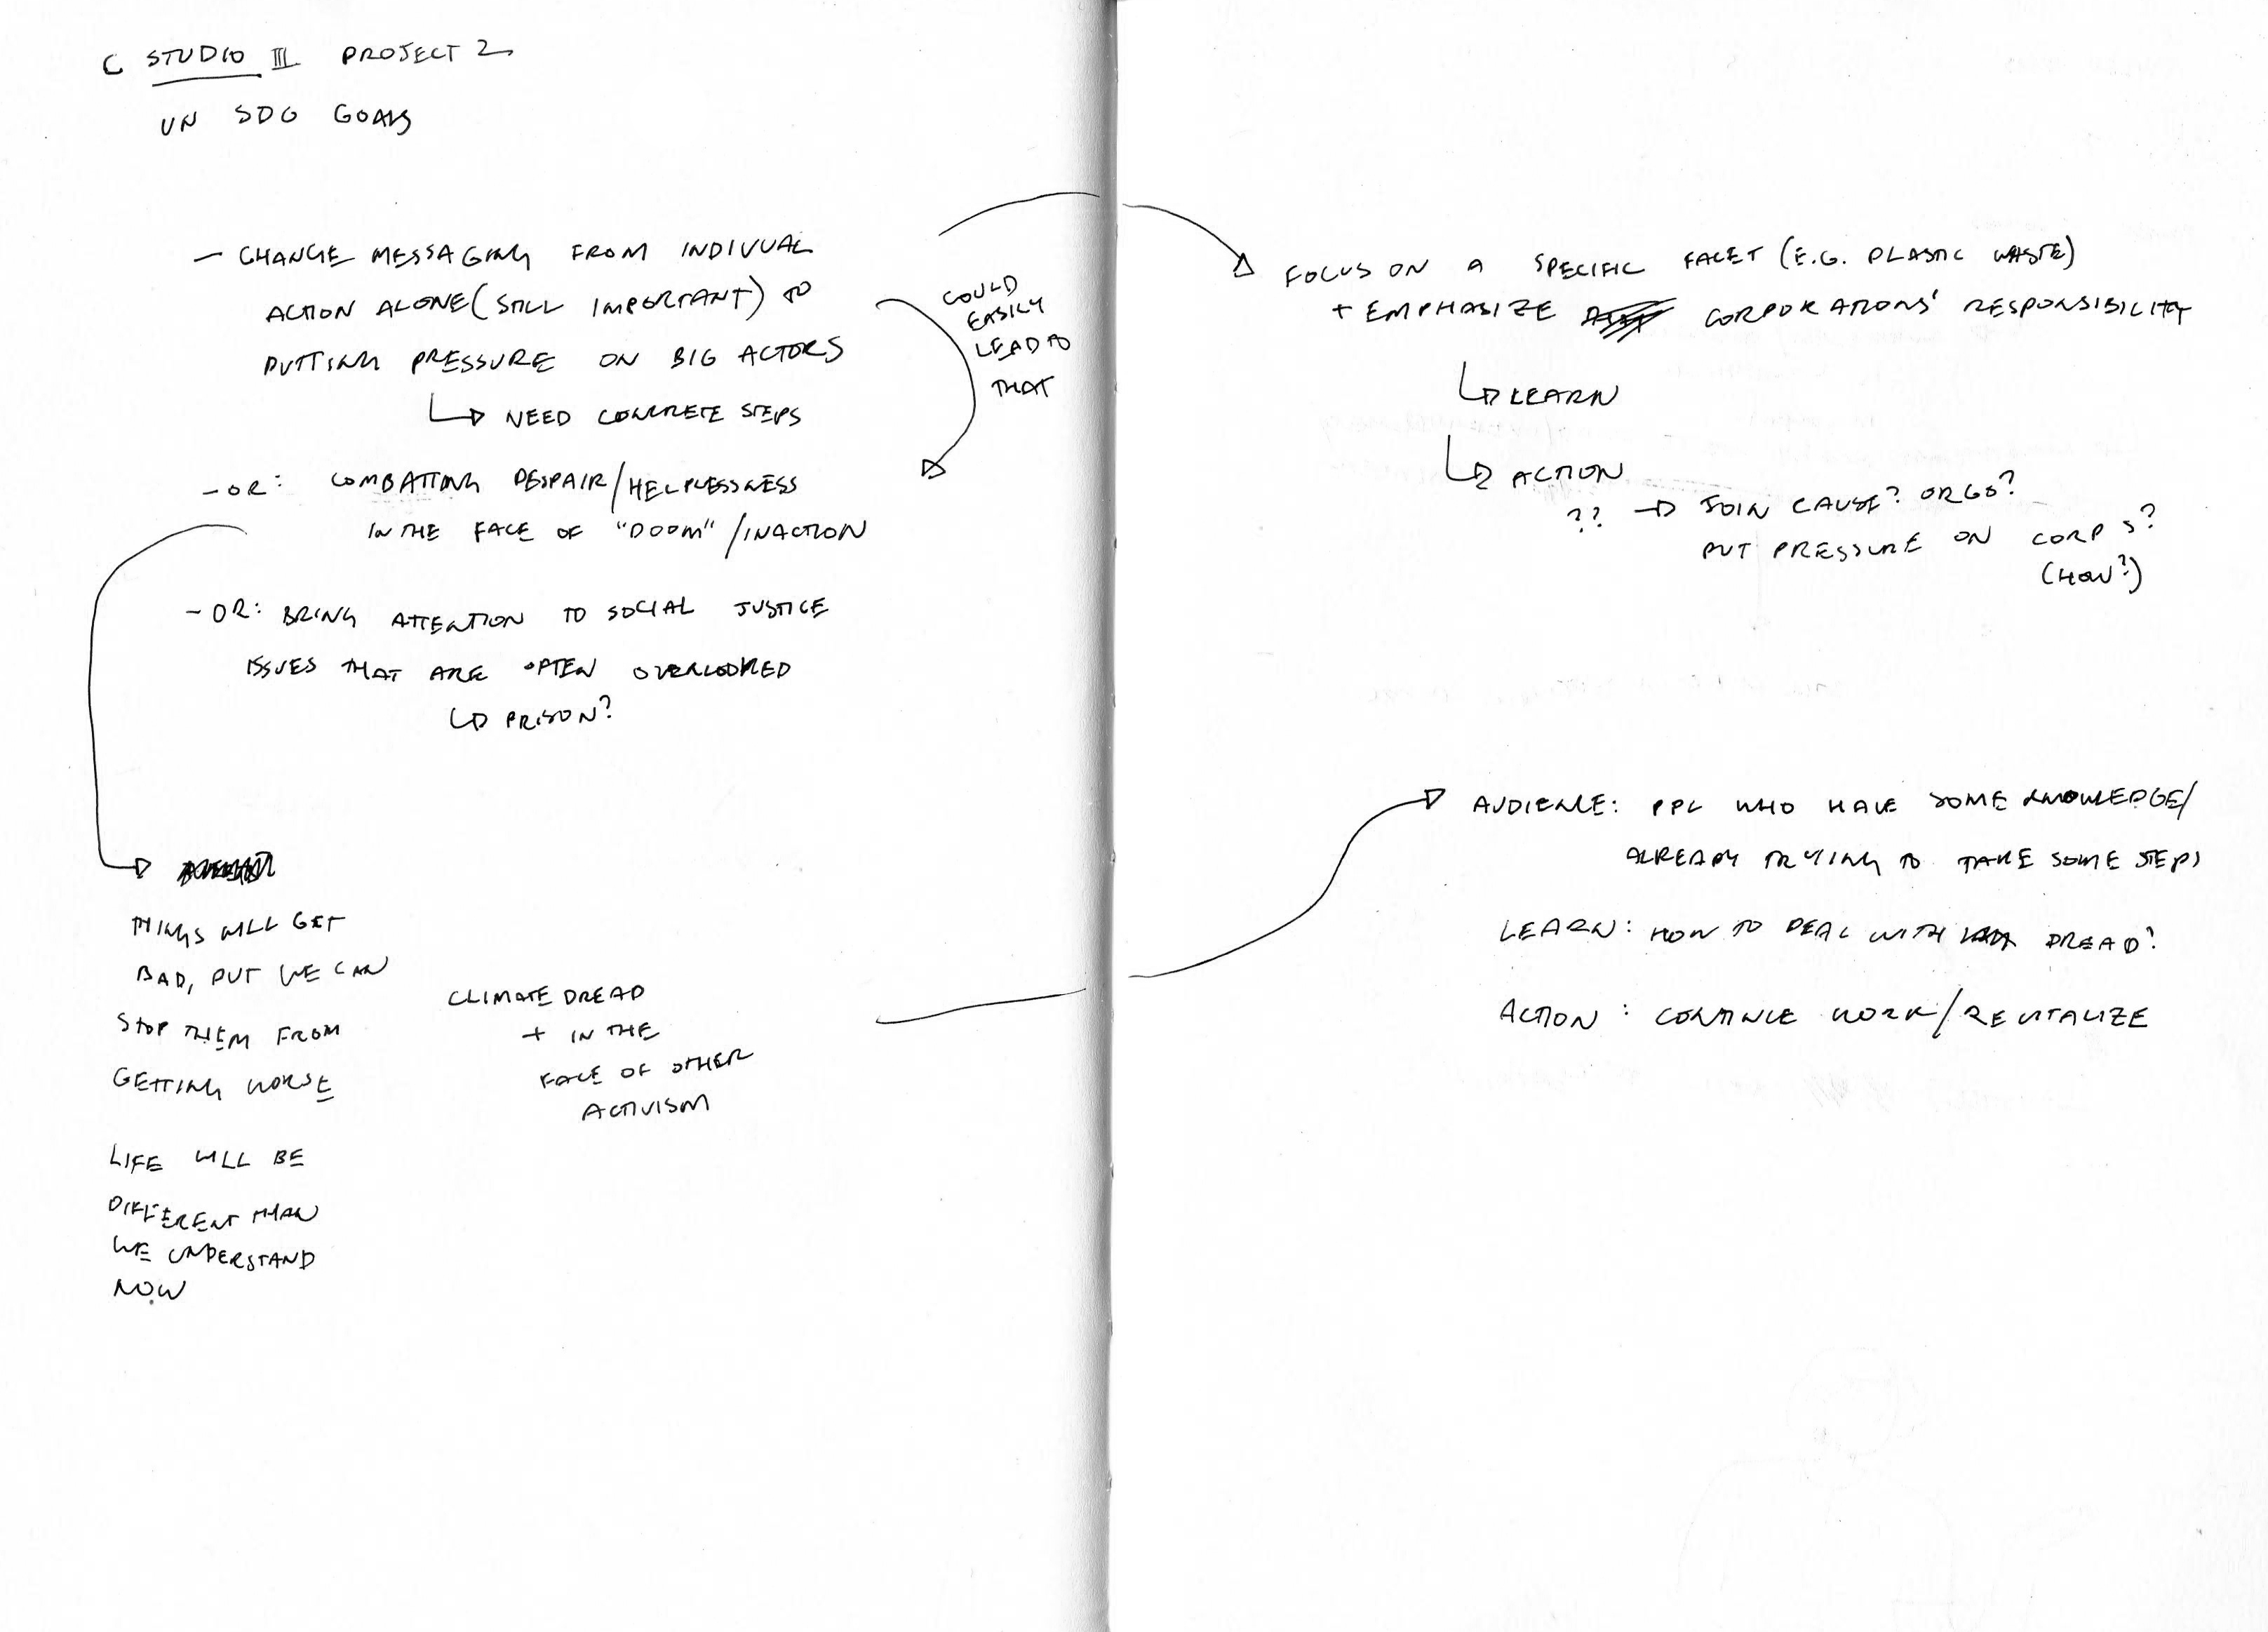 C STUDIO III PROJECT 2
UN SDG GOALS
— CHANGE MESSAGING FROM INDIVUAL
ACTION ALONE (STILL IMPORTANT) TO
PUTTING PRESSURE ON BIG ACTORS
↳ NEED CONCRETE STEPS
COULD
EASILY
LEAD TO
THAT
- OR: COMBATTING DESPAIR/HELPLESSNESS
IN THE FACE OF "DOOM"/INACTION
- OR: BRING ATTENTION TO SOCIAL JUSTICE
ISSUES THAT ARE OFTEN OVERLOOKED
↳ PRISON?
THINGS WILL GET
BAD, BUT WE CAN
STOP THEM FROM
GETTING WORSE
LIFE WILL BE
DIFFERENT THAN
WE UNDERSTAND
NOW
CLIMATE DREAD
+ IN THE
FACE OF OTHER
ACTIVISM
FOCUS ON A SPECIFIC FACET (E.G. PLASTIC WASTE)
+ EMPHASIZE CORPORATIONS' RESPONSIBILITY
↳ LEARN
↳ ACTION
?? → JOIN CAUSE? ORGS?
PUT PRESSURE ON CORPS?
(HOW?)
AUDIENCE: PPL WHO HAVE SOME KNOWLEDGE/
ALREADY TRYING TO TAKE SOME STEPS
LEARN: HOW TO DEAL WITH DREAD?
ACTION: CONTINUE WORK/REVITALIZE